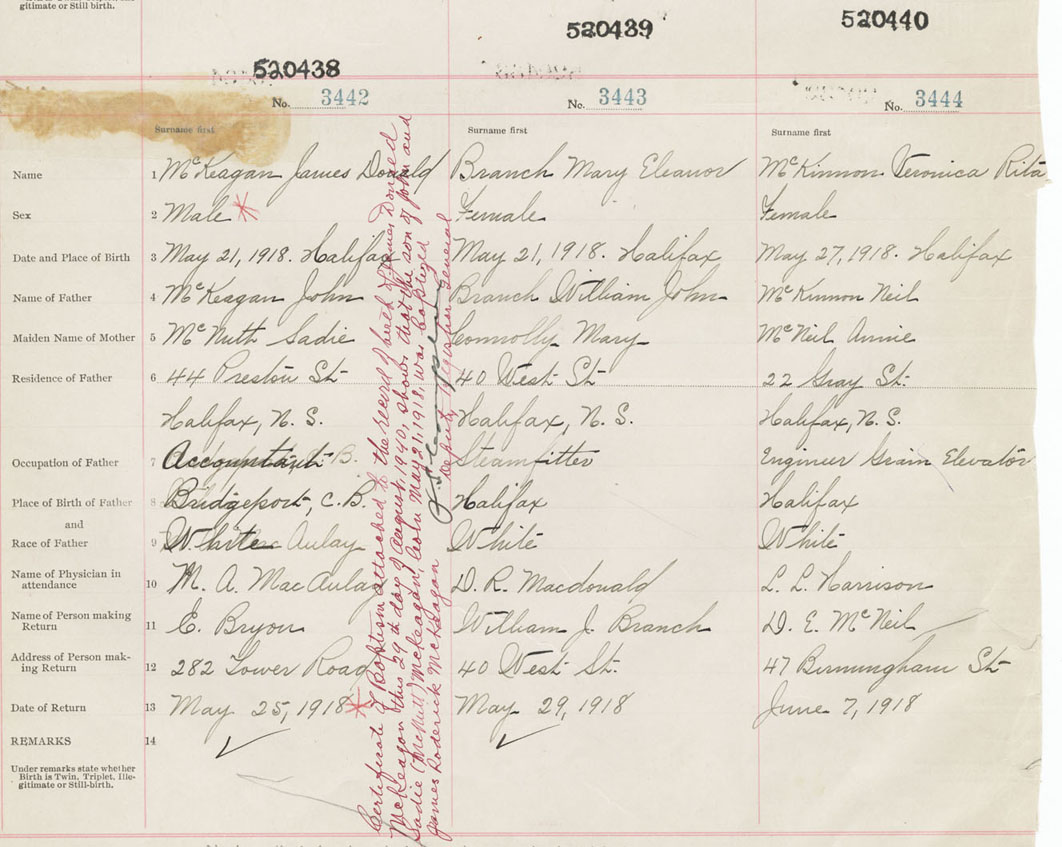 gitimate or Still birth.
520438 520439 520440
No. 3442 No. 3443 No. 3444
Surname first Surname first Surname first
Name 1 McKeagan James Donald Branch Mary Eleanor McKinnon Veronica Rita
Sex 2 Male * Female Female
Date and Place of Birth 3 May 21, 1918. Halifax May 21, 1918. Halifax May 27, 1918. Halifax
Name of Father 4 McKeagan John Branch William John McKinnon Neil
Maiden Name of Mother 5 McNutt Sadie Connolly Mary McNeil Annie
Residence of Father 6 44 Preston St 40 West St 22 Gray St.
Halifax, N. S. Halifax, N. S. Halifax, N. S.
Occupation of Father 7 Accountant Steamfitter Engineer Grain Elevator
Place of Birth of Father 8 Bridgeport, C. B. Halifax Halifax
and
Race of Father 9 White White White
Name of Physician in
attendance 10 M. A. MacAulay D. R. Macdonald L. L. Harrison
Name of Person making
Return 11 E. Bryon William J. Branch D. E. McNeil
Address of Person mak-
ing Return 12 282 Tower Road 40 West St. 47 Birmingham St
Date of Return 13 May 25, 1918 * May 29, 1918 June 7, 1918
REMARKS 14
Under remarks state whether
Birth is Twin, Triplet, Ille-
gitimate or Still-birth.
Certificate of Baptism attached to the record of birth of James Donald
McKeagan this 29th day of August, 1940, shows that the son of John and
Sadie (McNutt) McKeagan, born May 21, 1918, was baptized
James Roderick McKeagan
Deputy Registrar General